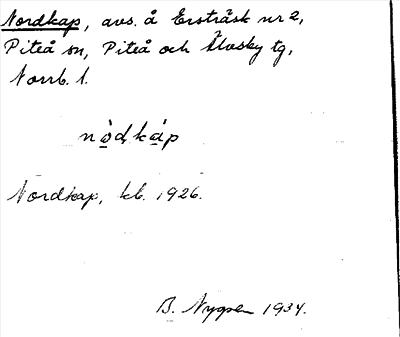 Nordkap, avs. å Ersträsk nr 2,
Piteå sn, Piteå och Älvsby tg,
Norrb. l.
nò̱dká̱p
Nordkap, kb. 1926.
B. Nygren 1934.